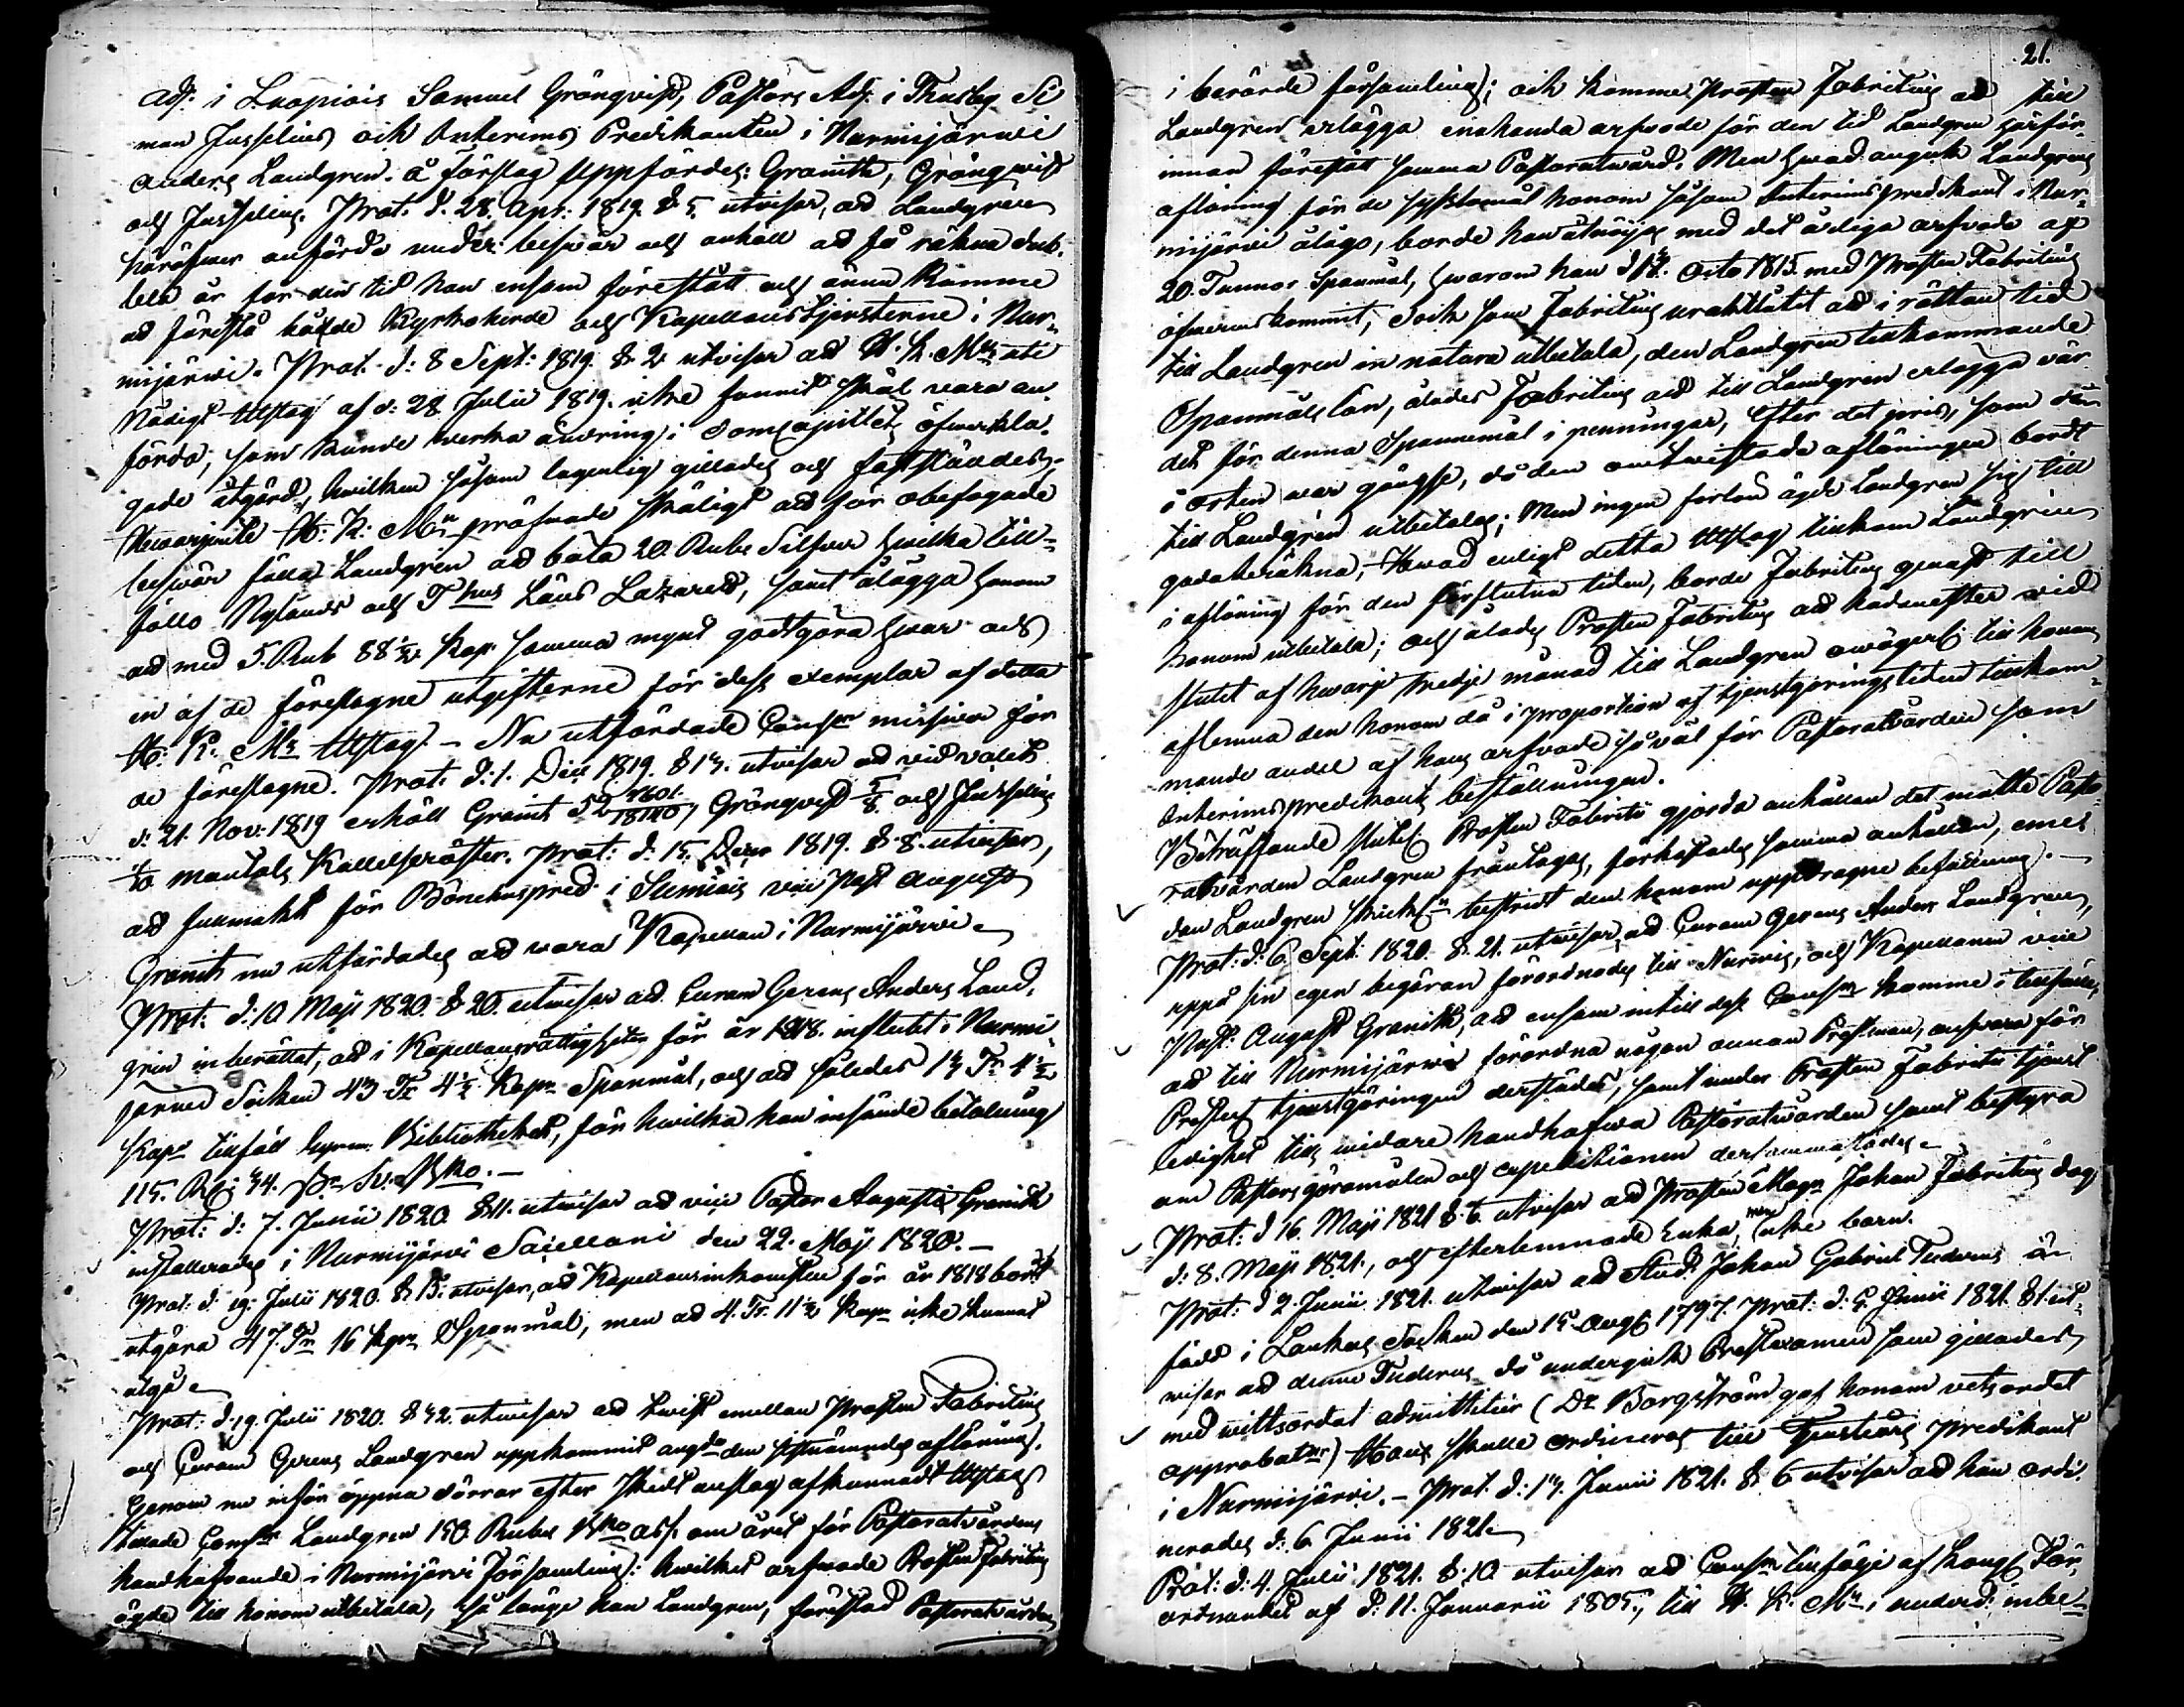 Adj: i Luopiois Samuel Grönqvist, Pastors Adj: i Thusby Si
mon Jusselius och Interims Predikanten i Nurmijärwi
Anders Landgren. å förslag uppfördes: Granith, Grönqwist
och Jusselius. Prot: d. 28. Apr: 1819. § 5. utvisar, ad Landgren
häröfwer anförde under: beswär och anhöll ad få räkna dub-
bla år för den tid han ensam förestått och ännu komme
ad förestå både Kyrkoherde och Kapellanstjensterne i Nur-
mijärwi. Prot: d: 8 Sept: 1819. § 2 utvisar ad H. K. Mt uti
Nådigt Utslag af d: 28 Julii 1819. icke funnit skäl vara an-
förda, som kunde werka ändring i Domcapitlets öfwerkla-
gade åtgärd, hwilken såsom lagenlig gillades och fastställdes;
Hwarjemte H: K: Mt pröfwade skäligt ad för obefogade
beswär fälla Landgren ad böta 20. Rub: Silfwer hwilka till-
föllo Nylands och Thus Läns Lazarett, samt ålägga honom
ad med 5. Rub 88½ Kop: samma mynt godtgöra hwar och
en af de föreslagne utgifterne för dess exemplar af detta
H: K: Mts Utslag. - Nu utfärdade Cons:m missiver för
de föreslagne. Prot: d: 1. Dec: 1819. § 13. utvisar ad vid valet
d: 21. Nov: 1819 erhöll Granit 52, Grönqvist 5/8. och Jusselius
1/10 mantals Kallelseröster. Prot: d: 15. Decr 1819. § 8. utvisar,
ad fullmakt för Bönehuspred: i Sumiais vice Past August
Granith nu utfärdades ad vara Kapellan i Nurmijärwi.
Prot: d: 10 Maji 1820. § 20. utvisar ad Curam Gerens Anders Land-
gren inberättat, ad i Kapellansrättigheter för år 1818. influtit i Nurmi-
järwi Socken 43 Tr 4½ Kapr Spanmål, och ad således
Kapr tillföll Gymn. Bibliotheket, för hwilka han insände betalning
115. R:
Prot: d: 7. Junii 1820 § 11. utvisar ad vice Pastor August Granith
installerades i Nurmijärwi Sacellani den 22. Maji 1820. -
Prot: d. 19. Julii 1820. § 15. utvisar, ad Kapellansinkomsten för år 1818 bordt
utgöra 47. Tr 16 kpr Spanmål, men ad 4. Tr. 11½ Kapr icke kunnat
utgå.
Prot: d. 19. Julii 1820. § 32. utvisar ad twist emellan Prosten Fabritius
och Curam Gerens Landgren uppkommit angde den sistnämndes aflöning.
Genom nu inför öppna dörrar efter skedt anslag afkunnadt Utslag
tillade Cons:m Landgren 150 Rubel Bko ass. om året för Pastoratvårdens
handhafwande i Nurmijärwi Församling: hwilket arfwode Prosten Fabritius
ägde till honom utbetala, så länge han Landgren, förestod Pastoratvården
21.
i berörde församling; och komme Prosten Fabritius ad till
Landgren erlägga enahanda arfwode för den tid Landgren härför-
innan förestått samma Pastoratwård. Men hwad angick Landgrens
aflöning för de sysslomål honom såsom Interimspredikant i Nur-
mijärwi ålågo, borde han åtnöjas med det årliga arfwode af
20. Tunnor Spanmål, hwarom han d. Octo 1815 med Prosten Fabritius
öfwerenskommit, doch som Fabritius uraktlåtit ad i rättan tid
till Landgren in natura utbetala, den Landgren tillkommande
Spanmåls lön, ålades Fabritius ad till Landgren erlägga vär-
det för denna Spannemål i penningar, efter det pris, som den
i orten war gängse, då den omtwistade aflöningen bordt
till Landgren utbetalas; Men ingen förlän ägde Landgren sig till
godoberäkna. Hwad enligt detta Utslag tillkom Landgren
i aflöning för den förflutna tiden, borde Fabritius genast till
honom utbetala; och ålades Prosten Fabritius ad hädanefter vid
slutet af hwarje tredje månad till Landgren owägerl till honom
aflemna den honom då i proportion af tjenstgöringstiden tillkom-
mande andel af hans arfwode såwäl för Pastoratvården som
Interimspredikants beställningen.
Beträffande slutel: Prosten Fabritii gjorda anhållan det måtte Pasto-
ratvården Landgren fråntagas, förkastades samma anhållan, emed
dan Landgren bestridt den honom uppdragne befattning. -
Prot: d: 6 Sept: 1820. § 21. utvisar, ad Curam Gerens Anders Landgren,
uppå sin egen begäran förordnades till Nurmis, och Kapellanen vice
Past: August Granith, ad ensam intill dess Cons:m komme i tillfälle
ad till Nurmijärwi förordna någon annan Prestman, answara för
Presterl: tjenstgöringen derstädes, samt under Prosten Fabritii tjenst
ledighet tills widare handhafwa Pastoratwården samt bestyra
om Pastorsgöromålen och expeditionen dersammastädes.
Prot: d 16. Maji 1821 § 6. utvisar ad Prosten Magr Johan Fabritius dog
d: 8. Maji 1821., och efterlemnade Enka, men icke barn.
Prot: d 2 Junii 1821. utvisar ad Stud: Johan Gabriel Tuderus är
född i Laukas Socken den 15. Aug 1797. Prot: d: 5. Junii 1821. § 1. ut-
wisar ad denne Tuderus då undergick Prestexamen som gillades
med wittsordet admittitur (Dr Borgström gaf honom vetsordet
approbatur) Hans skulle ordineras till Tjenstgörs Predikant
i Nurmijärwi. - Prot. d: 13. Junii 1821. § 6 utvisar ad han ordi-
nerades d: 6 Junii 1821.
Prot: d: 4. Julii 1821. § 10 utvisar ad Cons:m tillfölje af Kongl För-
ordnandet af d: 11. Januarii 1805., till H. K. Mt i underd: inbe-